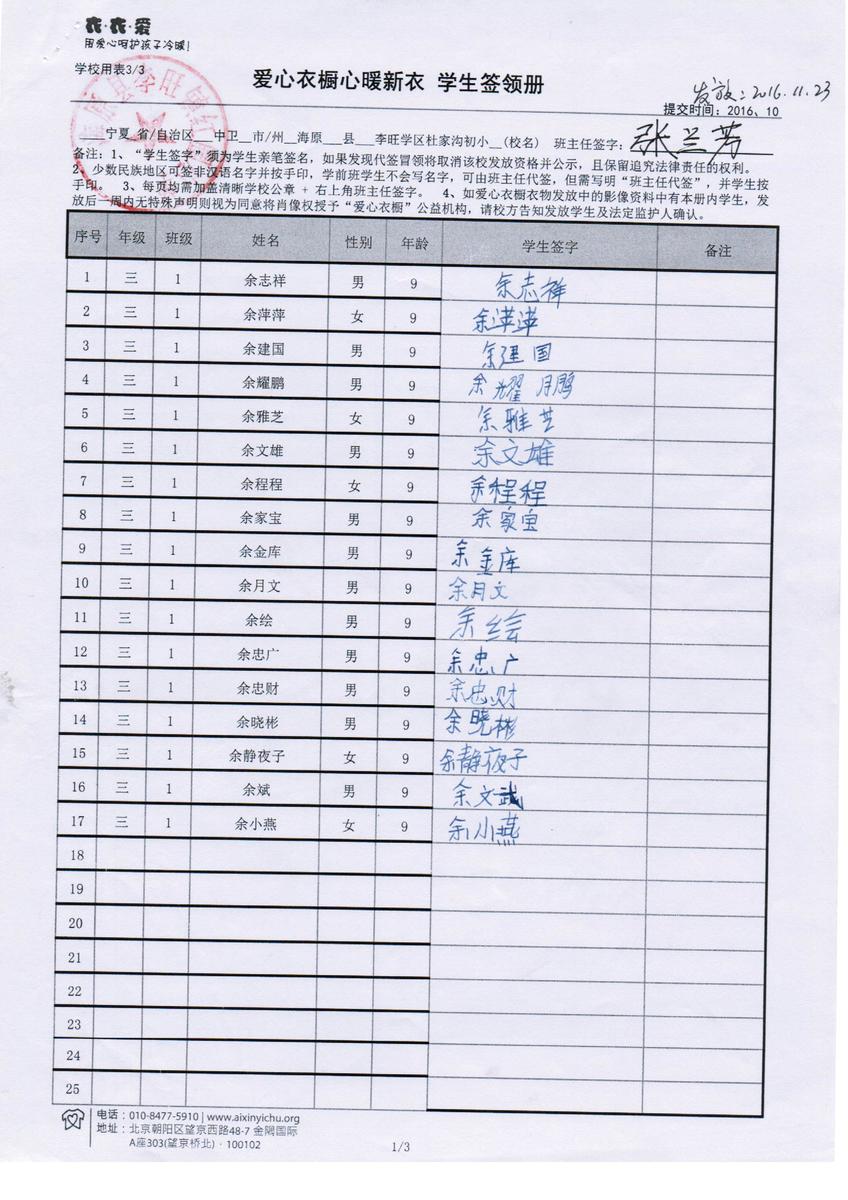 衣·衣·爱
用爱心呵护孩子冷暖!
学校用表3/3
爱心衣橱心暖新衣 学生签领册
发放:2016.11.23
提交时间:2016、10
____宁夏_省/自治区___中卫__市/州__海原___县___李旺学区杜家沟初小__(校名) 班主任签字:张兰芳
备注:1、“学生签字”须为学生亲笔签名,如果发现代签冒领将取消该校发放资格并公示,且保留追究法律责任的权利。
2、少数民族地区可签非汉语名字并按手印,学前班学生不会写名字,可由班主任代签,但需写明“班主任代签”,并学生按
手印。 3、每页均需加盖清晰学校公章 + 右上角班主任签字。 4、如爱心衣橱衣物发放中的影像资料中有本册内学生,发
放后一周内无特殊声明则视为同意将肖像权授予“爱心衣橱”公益机构,请校方告知发放学生及法定监护人确认。
序号 年级 班级 姓名 性别 年龄 学生签字 备注
1 三 1 余志祥 男 9 余志祥
2 三 1 余萍萍 女 9 余萍萍
3 三 1 余建国 男 9 余建国
4 三 1 余耀鹏 男 9 余耀鹏
5 三 1 余雅芝 女 9 余雅芝
6 三 1 余文雄 男 9 余文雄
7 三 1 余程程 女 9 余程程
8 三 1 余家宝 男 9 余家宝
9 三 1 余金库 男 9 余金库
10 三 1 余月文 男 9 余月文
11 三 1 余绘 男 9 余绘
12 三 1 余忠广 男 9 余忠广
13 三 1 余忠财 男 9 余忠财
14 三 1 余晓彬 男 9 余晓彬
15 三 1 余静夜子 女 9 余静夜子
16 三 1 余斌 男 9 余文武
17 三 1 余小燕 女 9 余小燕
18
19
20
21
22
23
24
25
电话:010-8477-5910 | www.aixinyichu.org
地址:北京朝阳区望京西路48-7 金隅国际
A座303(望京桥北)·100102
1/3